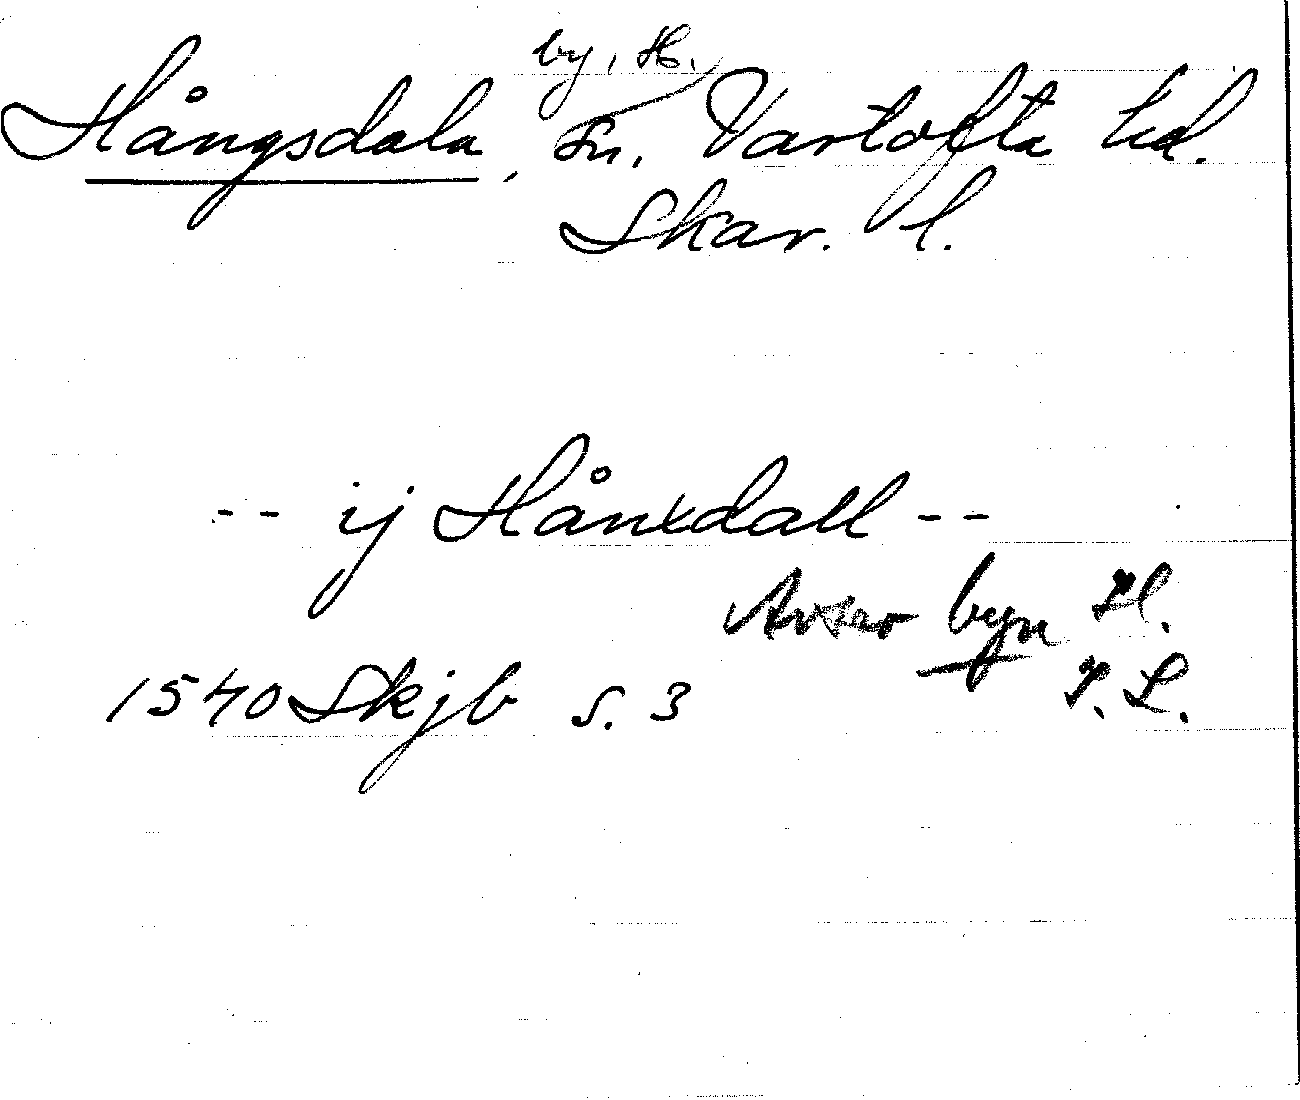 by, H.
Hångsdala, sn, Vartofta hd.
Skar. l.
-- ij Hånxdall --
Avser byn H.
I. L.
1540 Skjb s. 3